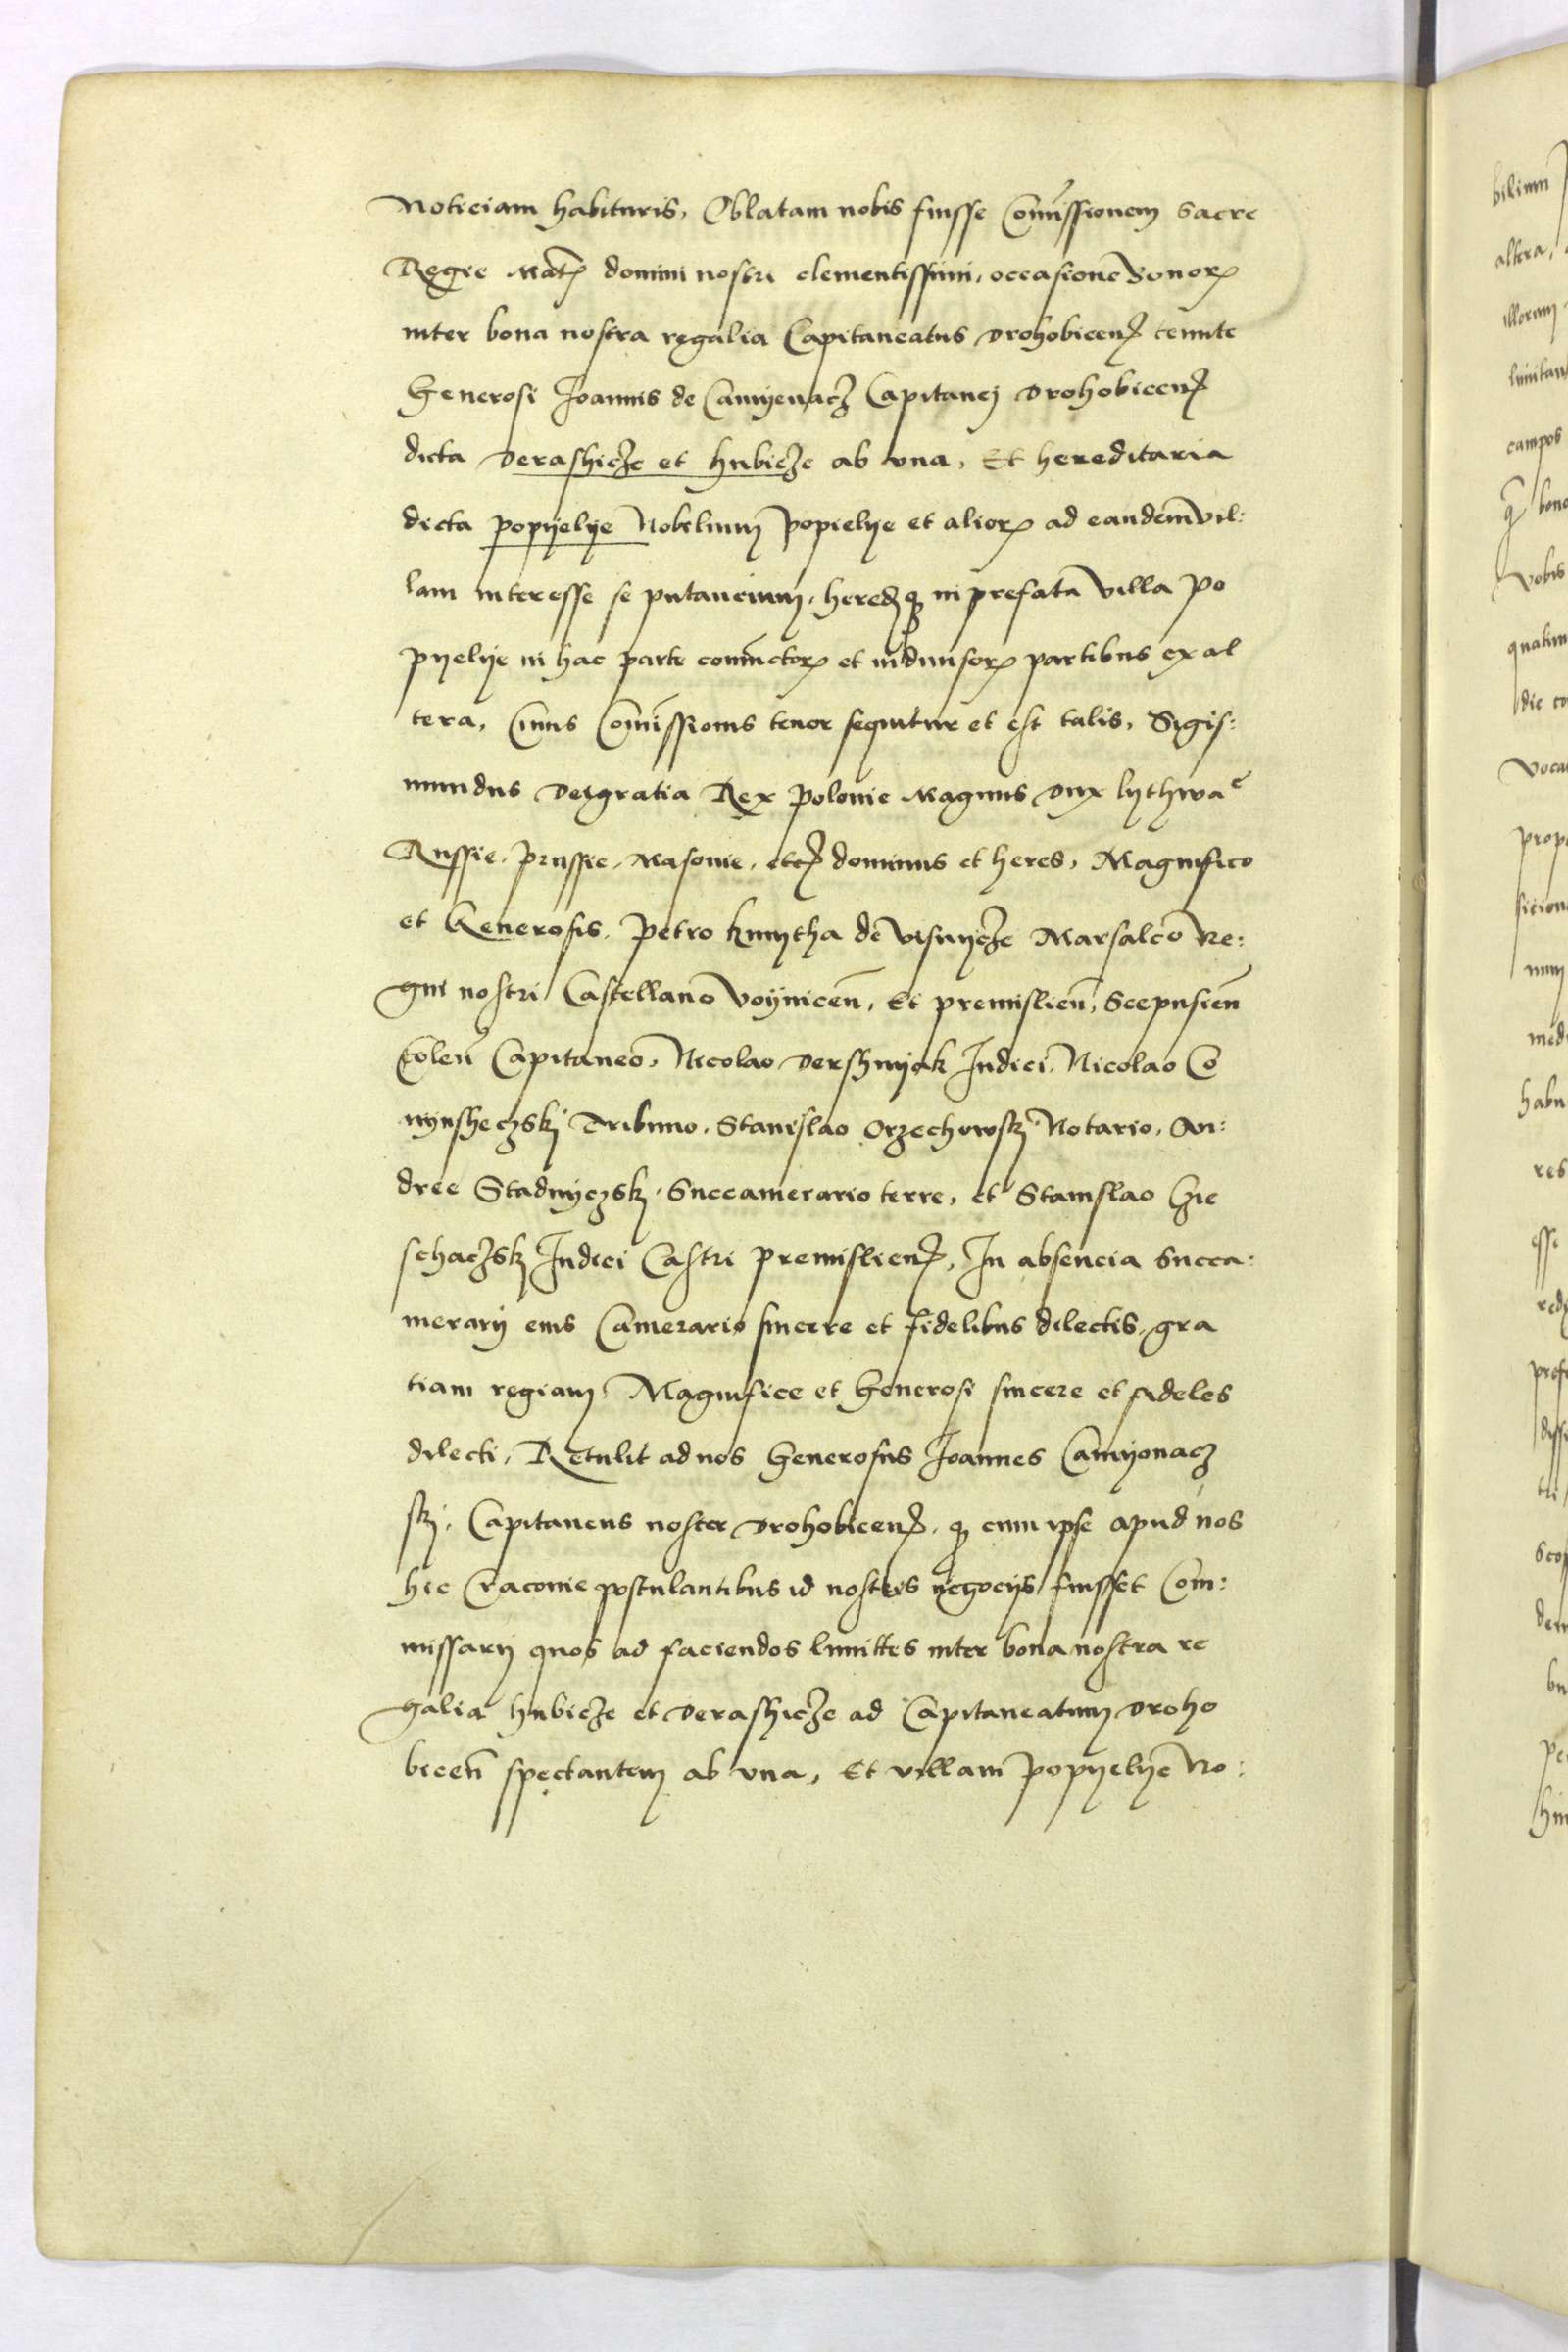 Noticiam habituris, Oblatam nobis fuisse Com̃issionem Sacre
Regie Matꝭ domini nostri clementissimi, occasione Bonoꝝ
inter bona nostra regalia Capitaneatus Drohobicenꝭ tenute
Generosi Joannis de Camyenacz Capitanej Drohobicenꝭ
dicta Derashicze et Hubicze ab vna, Et hereditaria
dicta Popyelye Nobilium Popielye et alioꝝ ad eandem vil:
lam interesse se putancium, heredꝭ in prefata villa Po
pyelye in hac parte coniunctoꝝ et indiuisoꝝ partibus ex al
tera, Cuius Com̃issionis tenor sequitur et est talis, Sigis:
mundus Dei gratia Rex Polonie Magnus Dux Lythwae
Russie, Prussie, Masouie, etcꝭ dominus et heres, Magnifico
et Generosis, Petro Kmytha de Visnycze Marsalco Re:
gni nostri Castellano Voynicen̄, Et Premislien̄, Scepusien̄
Colen̄ Capitaneo, Nicolao Dershnyak Judici, Nicolao Co
nynsheczskj Tribuno, Stanislao Orzechowskj Notario, An:
dree Stadnyczskj, Succamerario terre, et Stanislao Gie
schaczskj Judici Castri Premislienꝭ, In absencia Succa:
merarij eius Camerario sincere et fidelibus dilectis, gra
tiam regiam, Magnifice et Generosi sincere et fideles
dilecti, Retulit ad nos Generosus Joannes Camyonacz
skj, Capitaneus noster Drohobicenꝭ, qꝭ cum ipse apud nos
hic Cracouie postulantibus id nostris negocijs fuisset Com:
missarij quos ad faciendos limittes inter bona nostra re
galia Hubicze et Derashicze ad Capitaneatum Droho
bicen̄ spectantem ab vna, Et villam Popyelye No: